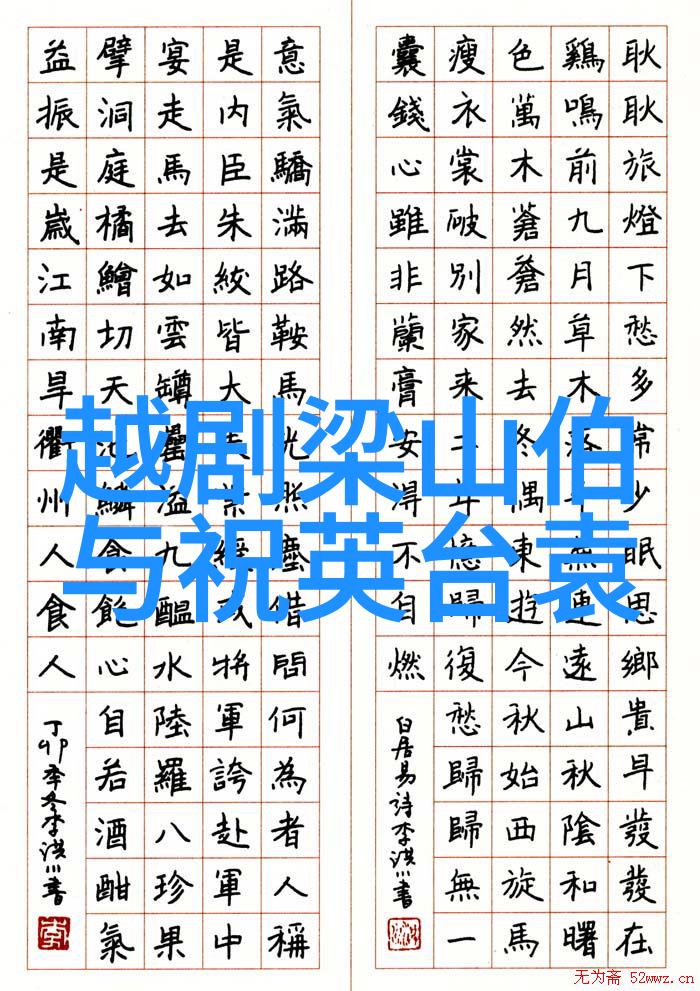 越剧梁山伯
与祝英台袁
耿耿旅燈下愁多常少眠思鄉貴早發發在
鷄鳴前九月草木落平蕪連遠山秋陰和曙
色萬木蒼蒼然去冬偶東遊今秋始西旋馬
瘦衣裳破別家來二年憶歸復愁歸歸無一
囊錢心雖非蘭膏安得不自燃
白居易詩李洪川書
意氣驕滿路鞍馬光照塵借問何為者人稱
是內臣朱紱皆大夫紫綬或將軍誇赴軍中
宴走馬去如雲罇罍溢九醞水陸羅八珍果
擘洞庭橘鱠切天池鱗食飽心自若酒酣氣
益振是歲江南旱衢州人食人
丁卯季冬李洪川書
无为斋 52wwz.cn